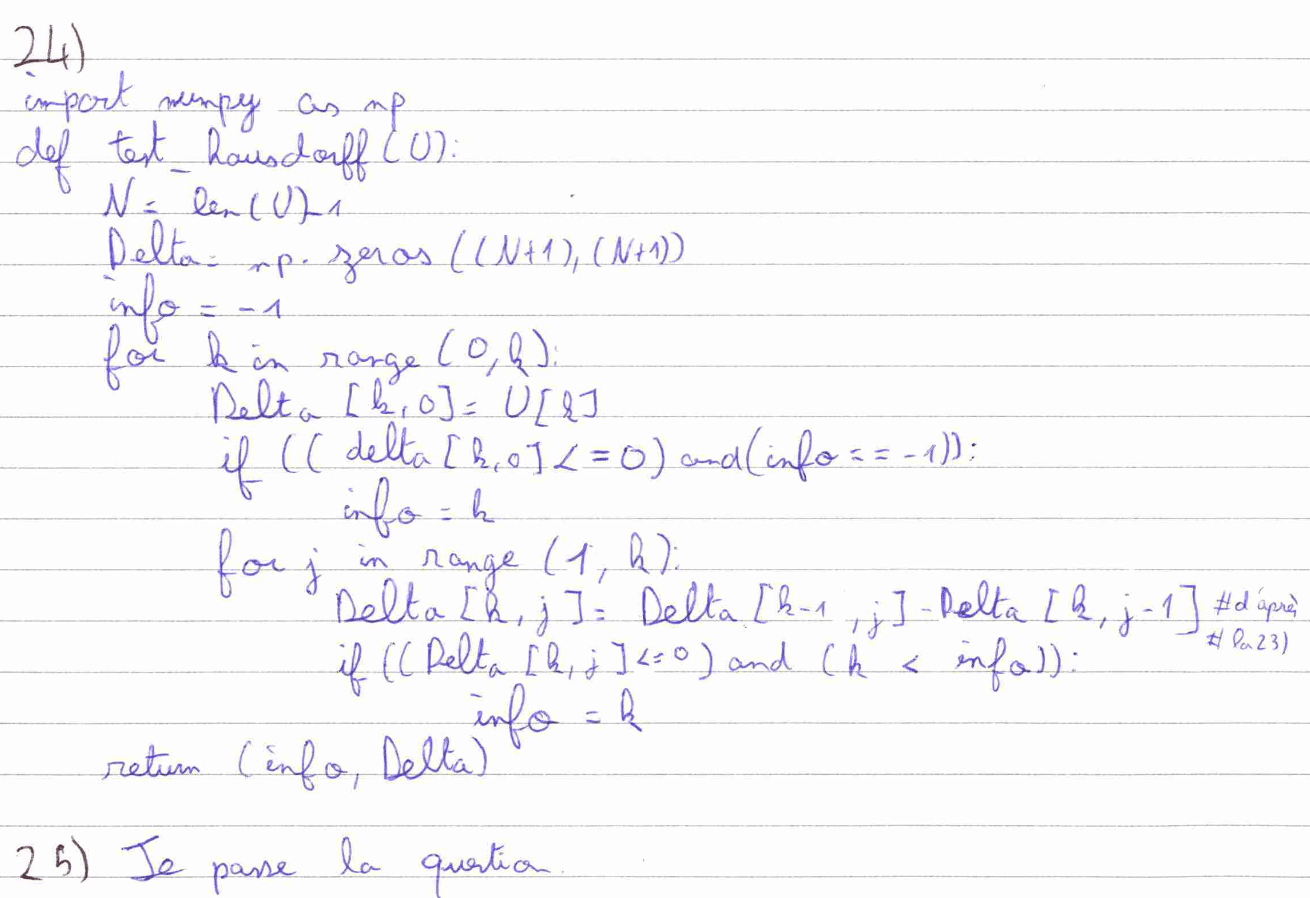 24)
import numpy as np
def test_hausdorff(U):
N = len(U)-1
Delta = np.zeros((N+1),(N+1))
info = -1
for k in range (0,k):
Delta [k,0] = U[k]
if (( delta [k,0] <= 0) and(info == -1)):
info = k
for j in range (1, k):
Delta [k, j] = Delta [k-1, j] - Delta [k, j-1] #d'après
# la 23)
if ((Delta [k, j] <= 0) and (k < info)):
info = k
return (info, Delta)
25) Je passe la question.